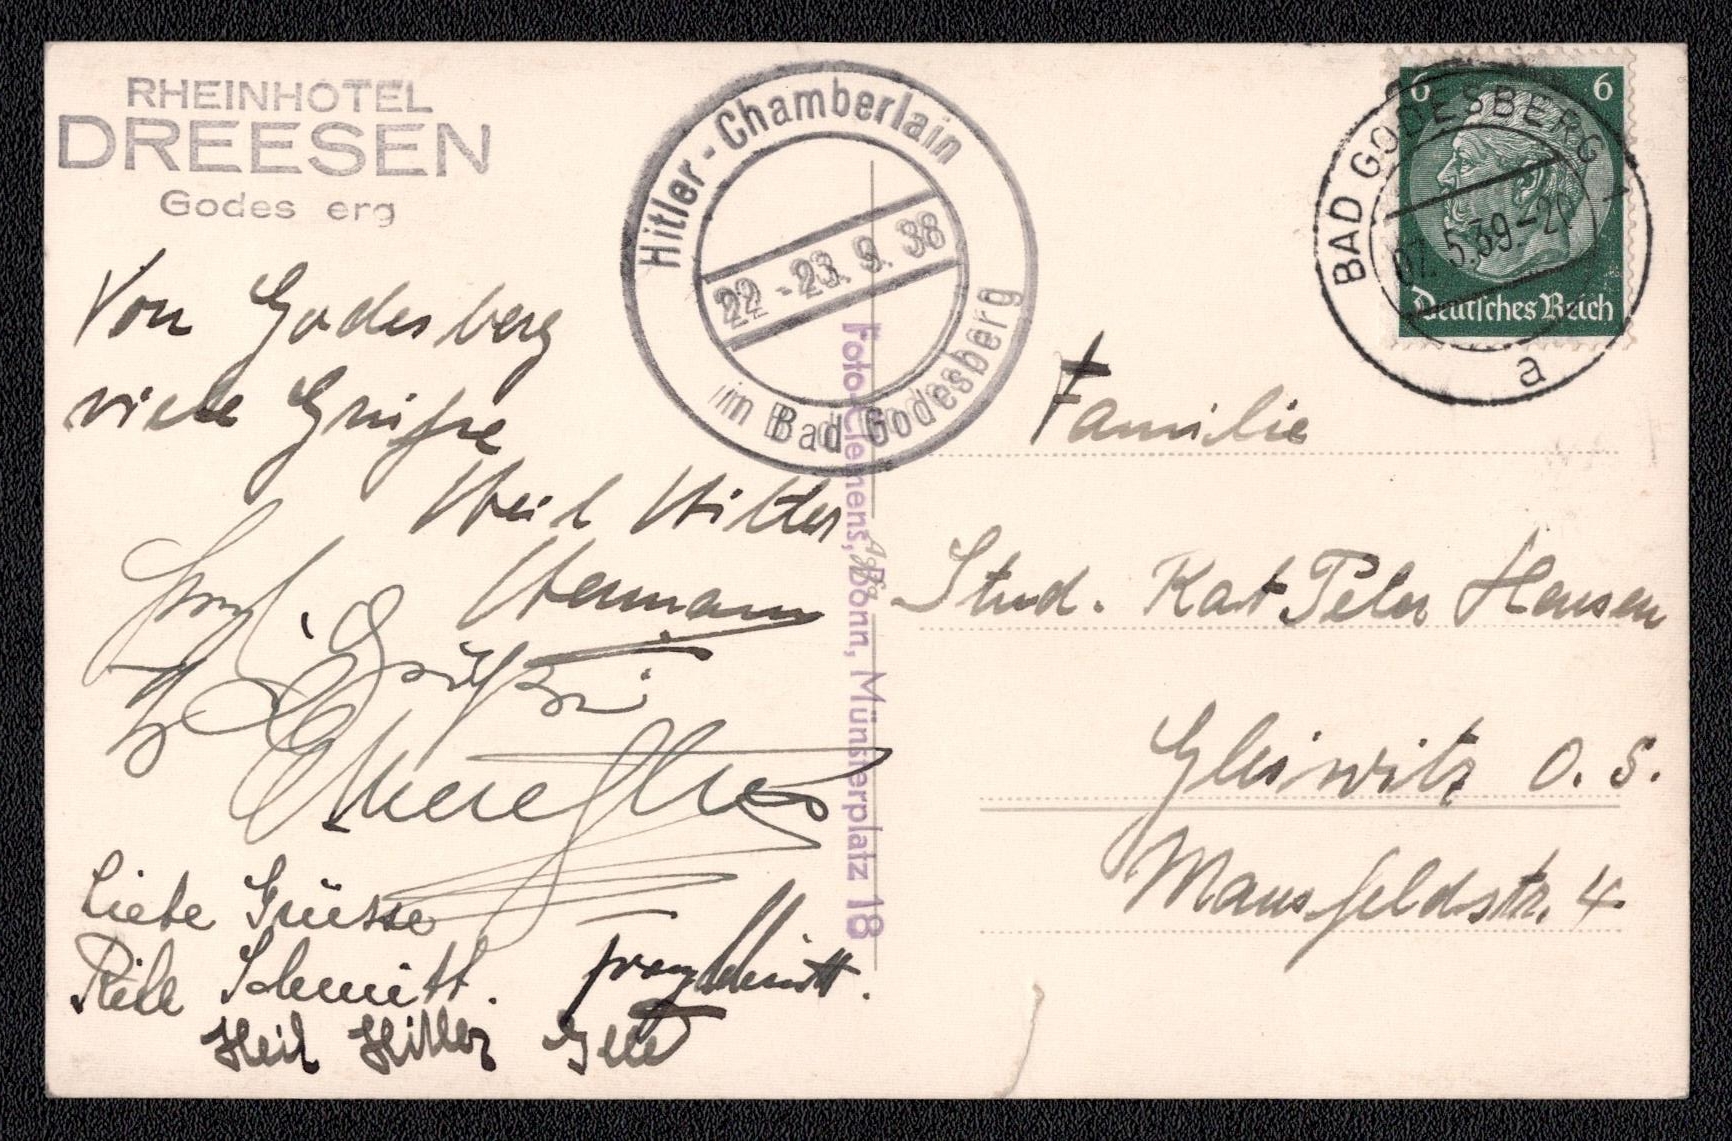 RHEINHOTEL
DREESEN
Godes erg
Hitler-Chamberlain
22.-23. 9. 38
im Bad Godesberg
6 6
Deutsches Reich
BAD GODESBERG
5.39.-20
a
Foto-Clemens, Bonn, Münsterplatz 18
Von Godesberg
viele Grüße
Heil Hitler
Hermann
Liebe Grüsse
Schmitt.
Heil Hitler
Familie
Stud. Rat Peter Hansen
Gleiwitz O. S.
Mansfeldstr. 4